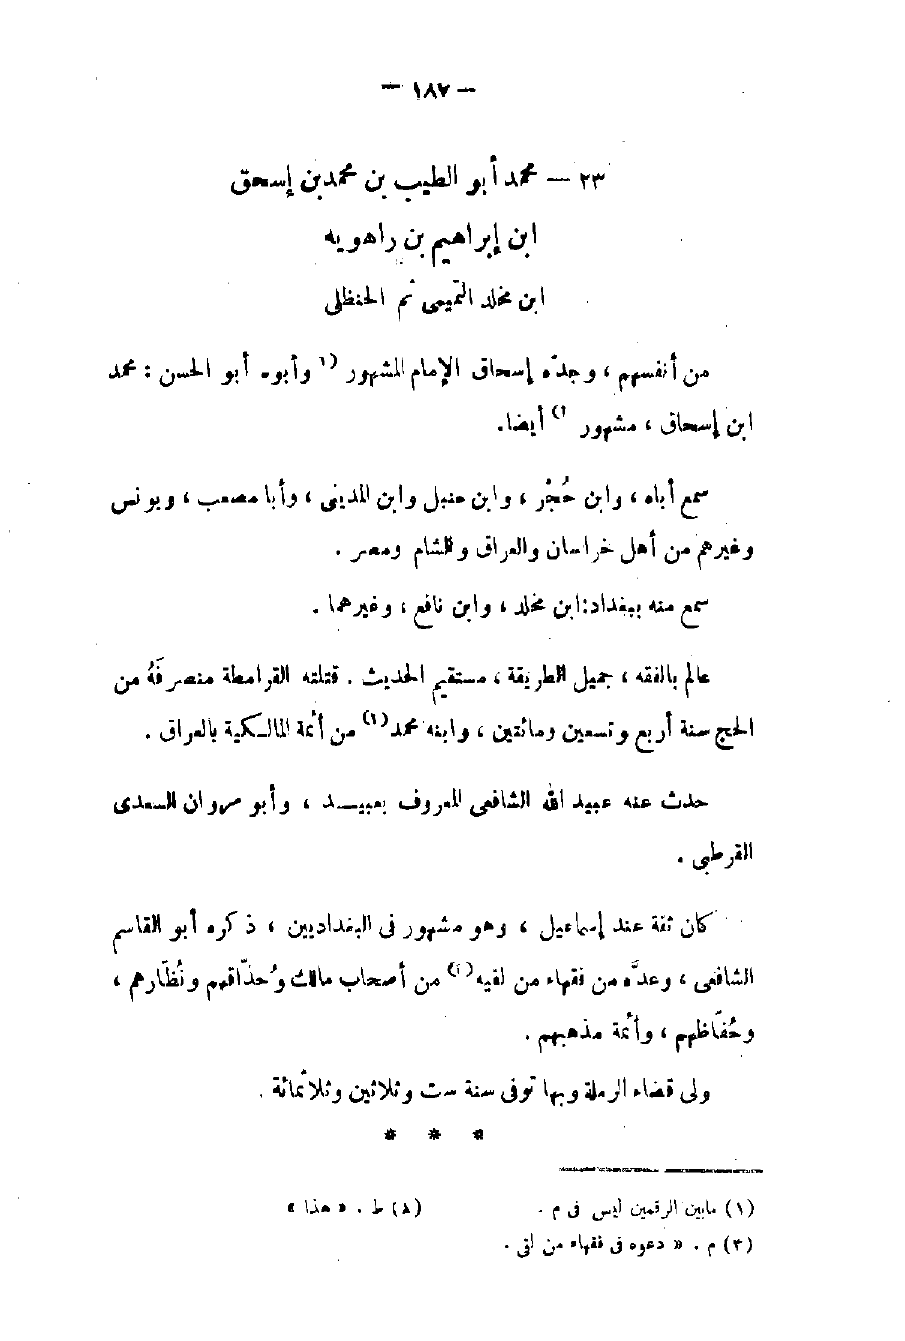 — ١٨٧ —
٢٣ — محمد أبو الطيب بن محمد بن إسحق
ابن إبراهيم بن راهويه
ابن مخلد التميمى ثم الحنظلى
من أنفسهم ، وجدّه إسحاق الإمام المشهور (١ وأبوه أبو الحسن : محمد
ابن إسحاق ، مشهور ١) أيضا.
سمع أباه ، وابن حُجْر ، وابن حنبل وابن المدينى ، وأبا مصعب ، ويونس
وغيرهم من أهل خراسان والعراق والشام ومصر .
سمع منه ببغداد: ابن مخلد ، وابن نافع ، وغيرهما .
عالم بالفقه ، جميل الطريقة ، مستقيم الحديث . قتلته القرامطة منصرفَهُ من
الحج سنة أربع وتسعين ومائتين ، وابنه محمد (٢) من أئمة المالكية بالعراق .
حدث عنه عبيد الله الشافعى المعروف بعبيد ، وأبو مروان السعدى
القرطبى .
كان ثقة عند إسماعيل ، وهو مشهور فى البغداديين ، ذكره أبو القاسم
الشافعى ، وعدَّه من فقهاء من لقيه (٣) من أصحاب مالك وحُذّاقهم ونُظّارهم ،
وحُفّاظهم ، وأئمة مذهبهم .
ولى قضاء الرملة وبها توفى سنة ست وثلاثين وثلاثمائة .
* * *
(١) مابين الرقمين ليس فى م . (٢) ط . « هذا »
(٣) م . « دعوه فى فقهاء من لقى .